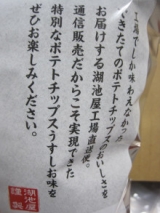 工場でしか味わえなかった
できたてのポテトチップスのおいしさを
お届けする湖池屋工場直送便。
通信販売だからこそ実現できた
特別なポテトチップスうすしお味を
ぜひお楽しみください。
湖池屋
謹製